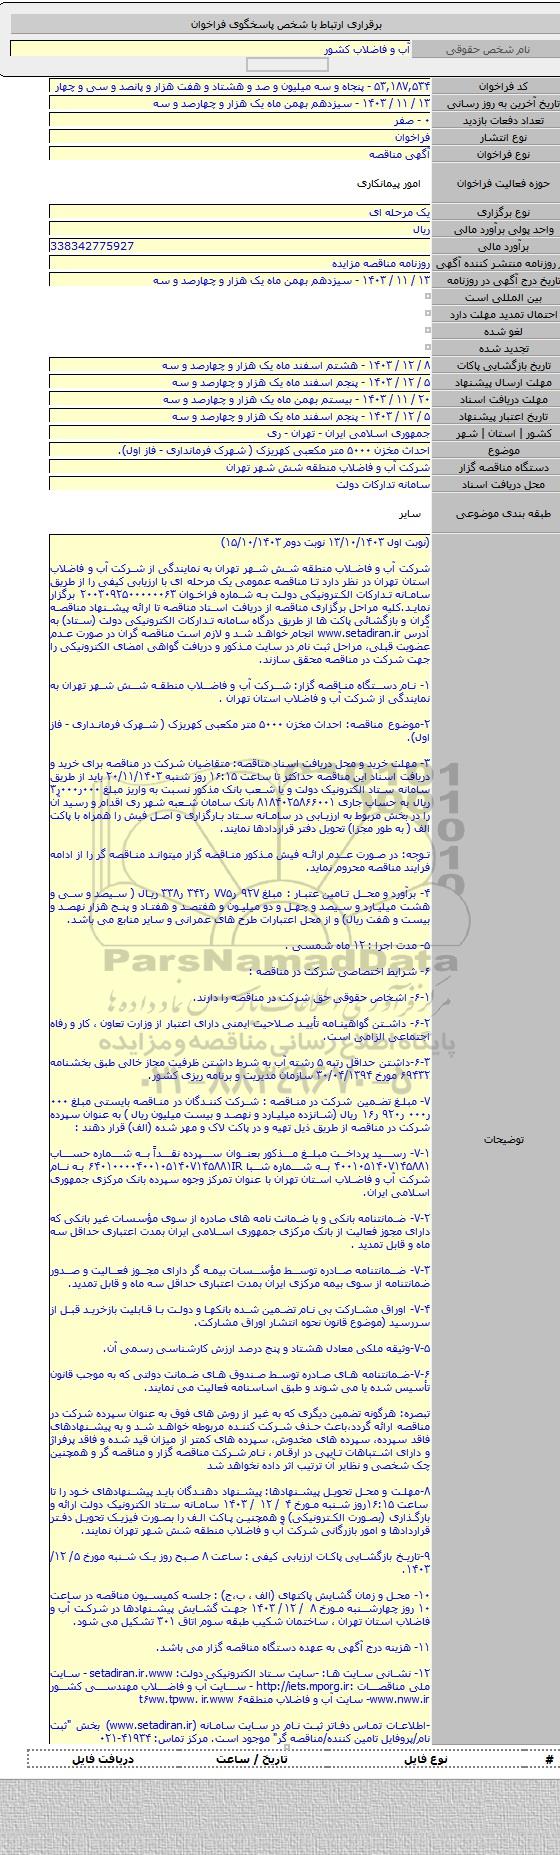 برقراری ارتباط با شخص پاسخگوی فراخوان
نام شخص حقوقی آب و فاضلاب کشور
کد فراخوان ۵۳,۱۸۷,۵۳۴ - پنجاه و سه میلیون و صد و هشتاد و هفت هزار و پانصد و سی و چهار
تاریخ آخرین به روز رسانی ۱۳ / ۱۱ / ۱۴۰۳ - سیزدهم بهمن ماه یک هزار و چهارصد و سه
تعداد دفعات بازدید ۰ - صفر
نوع انتشار فراخوان
نوع فراخوان آگهی مناقصه
حوزه فعالیت فراخوان امور پیمانکاری
نوع برگزاری یک مرحله ای
واحد پولی برآورد مالی ریال
برآورد مالی 338342775927
روزنامه منتشر کننده آگهی روزنامه مناقصه مزایده
تاریخ درج آگهی در روزنامه ۱۳ / ۱۱ / ۱۴۰۳ - سیزدهم بهمن ماه یک هزار و چهارصد و سه
بین المللی است
احتمال تمدید مهلت دارد
لغو شده
تجدید شده
تاریخ بازگشایی پاکات ۸ / ۱۲ / ۱۴۰۳ - هشتم اسفند ماه یک هزار و چهارصد و سه
مهلت ارسال پیشنهاد ۵ / ۱۲ / ۱۴۰۳ - پنجم اسفند ماه یک هزار و چهارصد و سه
مهلت دریافت اسناد ۲۰ / ۱۱ / ۱۴۰۳ - بیستم بهمن ماه یک هزار و چهارصد و سه
تاریخ اعتبار پیشنهاد ۵ / ۱۲ / ۱۴۰۳ - پنجم اسفند ماه یک هزار و چهارصد و سه
کشور | استان | شهر جمهوری اسلامی ایران - تهران - ری
موضوع احداث مخزن ۵۰۰۰ متر مکعبی کهریزک ( شهرک فرمانداری - فاز اول).
دستگاه مناقصه گزار شرکت آب و فاضلاب منطقه شش شهر تهران
محل دریافت اسناد سامانه تدارکات دولت
طبقه بندی موضوعی سایر
توضیحات
(نوبت اول ۱۳/۱۰/۱۴۰۳ نوبت دوم ۱۵/۱۰/۱۴۰۳)
شرکت آب و فاضلاب منطقه شش شهر تهران به نمایندگی از شرکت آب و فاضلاب
استان تهران در نظر دارد تا مناقصه عمومی یک مرحله ای با ارزیابی کیفی را از طریق
سامانه تدارکات الکترونیکی دولت به شماره فراخوان ۲۰۰۳۰۹۲۵۰۰۰۰۰۰۶۳ برگزار
نماید.کلیه مراحل برگزاری مناقصه از دریافت اسناد مناقصه تا ارائه پیشنهاد مناقصه
گران و بازگشائی پاکت ها از طریق درگاه سامانه تدارکات الکترونیکی دولت (ستاد) به
آدرس www.setadiran.ir انجام خواهد شد و لازم است مناقصه گران در صورت عدم
عضویت قبلی، مراحل ثبت نام در سایت مذکور و دریافت گواهی امضای الکترونیکی را
جهت شرکت در مناقصه محقق سازند.
۱- نام دستگاه مناقصه گزار: شرکت آب و فاضلاب منطقه شش شهر تهران به
نمایندگی از شرکت آب و فاضلاب استان تهران .
۲-موضوع مناقصه: احداث مخزن ۵۰۰۰ متر مکعبی کهریزک ( شهرک فرمانداری - فاز
اول).
۳- مهلت خرید و محل دریافت اسناد مناقصه: متقاضیان شرکت در مناقصه برای خرید و
دریافت اسناد این مناقصه حداکثر تا ساعت ۱۶:۱۵ روز شنبه ۲۰/۱۱/۱۴۰۳ باید از طریق
سامانه ستاد الکترونیک دولت و یا شعب بانک مذکور نسبت به واریز مبلغ ۳,۰۰۰,۰۰۰
ریال به حساب جاری ۸۱۸۴۰۲۵۸۶۶۰۰۱ بانک سامان شعبه شهر ری اقدام و رسید آن
را در بخش مربوط به ارزیابی در سامانه ستاد بارگزاری و اصل فیش را همراه با پاکت
الف ( به طور مجزا) تحویل دفتر قراردادها نمایند.
توجه: در صورت عدم ارائه فیش مذکور مناقصه گزار میتواند مناقصه گر را از ادامه
فرایند مناقصه محروم نماید.
۴- برآورد و محل تامین عتبار : مبلغ ۹۲۷ ر۷۷۵ ر۳۴۲ ر۳۳۸ ریال ( سیصد و سی و
هشت میلیارد و سیصد و چهل و دو میلیون و هفتصد و هفتاد و پنج هزار نهصد و
بیست و هفت ریال) و از محل اعتبارات طرح های عمرانی و سایر منابع می باشد.
۵- مدت اجرا : ۱۲ ماه شمسی .
۶- شرایط اختصاصی شرکت در مناقصه :
۶-۱- اشخاص حقوقی حق شرکت در مناقصه را دارند.
۶-۲- داشتن گواهینامه تأیید صلاحیت ایمنی دارای اعتبار از وزارت تعاون ، کار و رفاه
اجتماعی الزامی است.
۶-۳-داشتن حداقل رتبه ۵ رشته آب به شرط داشتن ظرفیت مجاز خالی طبق بخشنامه
۶۹۴۳۲ مورخ ۳۰/۰۴/۱۳۹۴ سازمان مدیریت و برنامه ریزی کشور.
۷- مبلغ تضمین شرکت در مناقصه : شرکت کنندگان در مناقصه بایستی مبلغ ۰۰۰
ر۰۰۰ ر۹۲۰ ر۱۶ ریال (شانزده میلیارد و نهصد و بیست میلیون ریال ) به عنوان سپرده
شرکت در مناقصه از طریق ذیل تهیه و در پاکت لاک و مهر شده (الف) قرار دهند :
۷-۱- رسید پرداخت مبلغ مذکور بعنوان سپرده نقداً به شماره حساب
۴۰۰۱۰۵۱۴۰۷۱۴۵۸۸۱ به شماره شبا ۶۴۰۱۰۰۰۰۴۰۰۱۰۵۱۴۰۷۱۴۵۸۸۱IR به نام
شرکت آب و فاضلاب استان تهران با عنوان تمرکز وجوه سپرده بانک مرکزی جمهوری
اسلامی ایران.
۷-۲- ضمانتنامه بانکی و یا ضمانت نامه های صادره از سوی مؤسسات غیر بانکی که
دارای مجوز فعالیت از بانک مرکزی جمهوری اسلامی ایران بمدت اعتباری حداقل سه
ماه و قابل تمدید .
۷-۳- ضمانتنامه صادره توسط مؤسسات بیمه گر دارای مجوز فعالیت و صدور
ضمانتنامه از سوی بیمه مرکزی ایران بمدت اعتباری حداقل سه ماه و قابل تمدید.
۷-۴- اوراق مشارکت بی نام تضمین شده بانکها و دولت با قابلیت بازخرید قبل از
سررسید (موضوع قانون نحوه انتشار اوراق مشارکت.
۷-۵-وثیقه ملکی معادل هشتاد و پنج درصد ارزش کارشناسی رسمی آن.
۷-۶-ضمانتنامه های صادره توسط صندوق های ضمانت دولتی که به موجب قانون
تأسیس شده یا می شوند و طبق اساسنامه فعالیت می نمایند.
تبصره: هرگونه تضمین دیگری که به غیر از روش های فوق به عنوان سپرده شرکت در
مناقصه ارائه گردد،باعث حذف شرکت کننده مربوطه خواهد شد و به پیشنهادهای
فاقد سپرده، سپرده های مخدوش، سپرده های کمتر از میزان قید شده و فاقد پرفراژ
و دارای اشتباهات تایپی در ارقام ، نام شرکت مناقصه گزار و مناقصه گر و همچنین
چک شخصی و نظایر آن ترتیب اثر داده نخواهد شد
۸-مهلت و محل تحویل پیشنهادها: پیشنهاد دهندگان باید پیشنهادهای خود را تا
ساعت ۱۶:۱۵روز شنبه مورخ ۴ / ۱۲ / ۱۴۰۳ سامانه ستاد الکترونیک دولت ارائه و
بارگذاری (بصورت الکترونیکی) و همچنین پاکت الف را بصورت فیزیک تحویل دفتر
قراردادها و امور بازرگانی شرکت آب و فاضلاب منطقه شش شهر تهران نمایند.
۹-تاریخ بازگشایی پاکات ارزیابی کیفی : ساعت ۸ صبح روز یک شنبه مورخ ۵/ ۱۲/
۱۴۰۳.
۱۰- محل و زمان گشایش پاکتهای (الف ، ب،ج) : جلسه کمیسیون مناقصه در ساعت
۱۰ روز چهارشنبه مورخ ۸ / ۱۲/ ۱۴۰۳ جهت گشایش پیشنهادها در شرکت آب و
فاضلاب استان تهران ، ساختمان شکیب طبقه سوم اتاق ۳۰۱ تشکیل می شود.
۱۱- هزینه درج آگهی به عهده دستگاه مناقصه گزار می باشد.
۱۲- نشانی سایت ها: -سایت ستاد الکترونیکی دولت: setadiran.ir.www - سایت
ملی مناقصات :http://iets.mporg.ir - سایت آب و فاضلاب مهندسی کشور
www.nww.ir- سایت آب و فاضلاب منطقه۶ t۶ww.tpww. ir.www
-اطلاعات تماس دفاتر ثبت نام در سایت سامانه (www.setadiran.ir) بخش "ثبت
نام/پروفایل تامین کننده/مناقصه گر" موجود است. مرکز تماس: ۴۱۹۳۴-۰۲۱
# نوع فایل تاریخ / ساعت دریافت فایل
ParsNamadData
پایگاه اطلاع رسانی مناقصه و مزایده